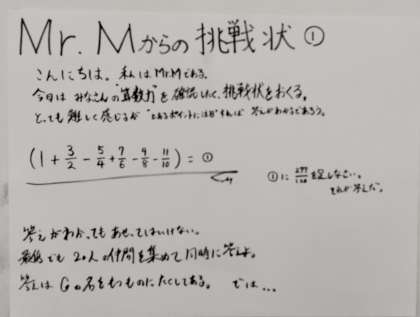 Mr. Mからの挑戦状①
こんにちは。私はMr.Mである。
今日はみなさんの"算数力"を確認したく、挑戦状をおくる。
とっても難しく感じるが"とあるポイント"に すれば 答えがわかるであろう。
(1 + 3/2 - 5/4 + 7/6 - 9/8 - 11/10) = ①
①に を足しなさい。
それが答えだ。
答えがわかってもあせってはいけない。
最低でも 20人の仲間を集めて同時に答えよ。
答えは Gの名をもつものにたくしてある。 では...